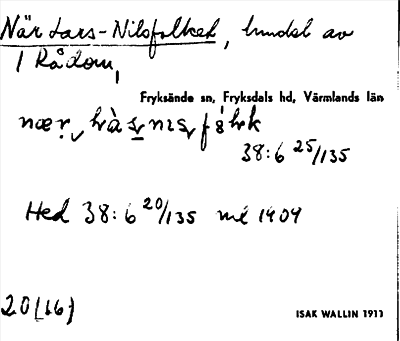 När Lars-Nilsfolket, hundst av
1 Rådom,
Fryksände sn, Fryksdals hd, Värmlands län
38:6 25/135
Hed 38:6 20/135 mé 1909
20(16)
ISAK WALLIN 1911